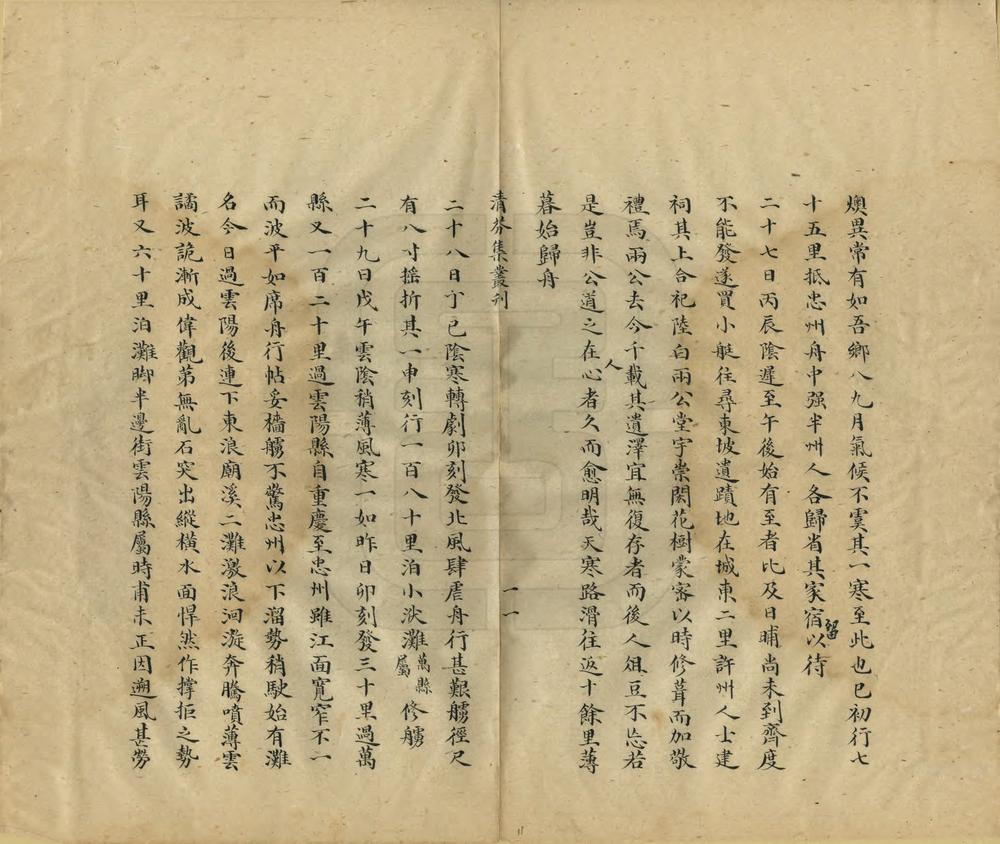 燠異常有如吾鄉八九月氣候不虞其一寒至此也巳初行七
十五里抵忠州舟中强半州人各歸省其家宿留以待
二十七日丙辰陰遲至午後始有至者比及日晡尚未到齊度
不能發遂買小艇往尋東坡遺蹟地在城東二里許州人士建
祠其上合祀陸白兩公堂宇崇閎花樹蒙密以時修葺而加敬
禮焉兩公去今千載其遺澤宜無復存者而後人俎豆不忘若
是豈非公道之在人心者久而愈明哉天寒路滑往返十餘里薄
暮始歸舟
清芬集叢刊
一一
二十八日丁巳陰寒轉劇卯刻發北風肆虐舟行甚艱艣徑尺
有八寸搖折其一申刻行一百八十里泊小湫灘萬縣屬修艣
二十九日戊午雲陰稍薄風寒一如昨日卯刻發三十里過萬
縣又一百二十里過雲陽縣自重慶至忠州雖江面寬窄不一
而波平如席舟行帖妥檣艣不驚忠州以下溜勢稍駛始有灘
名今日過雲陽後連下東浪廟溪二灘激浪洄漩奔騰噴薄雲
譎波詭漸成偉觀第無亂石突出縱橫水面悍然作撑拒之勢
耳又六十里泊灘脚半邊街雲陽縣屬時甫未正因遡風甚勞